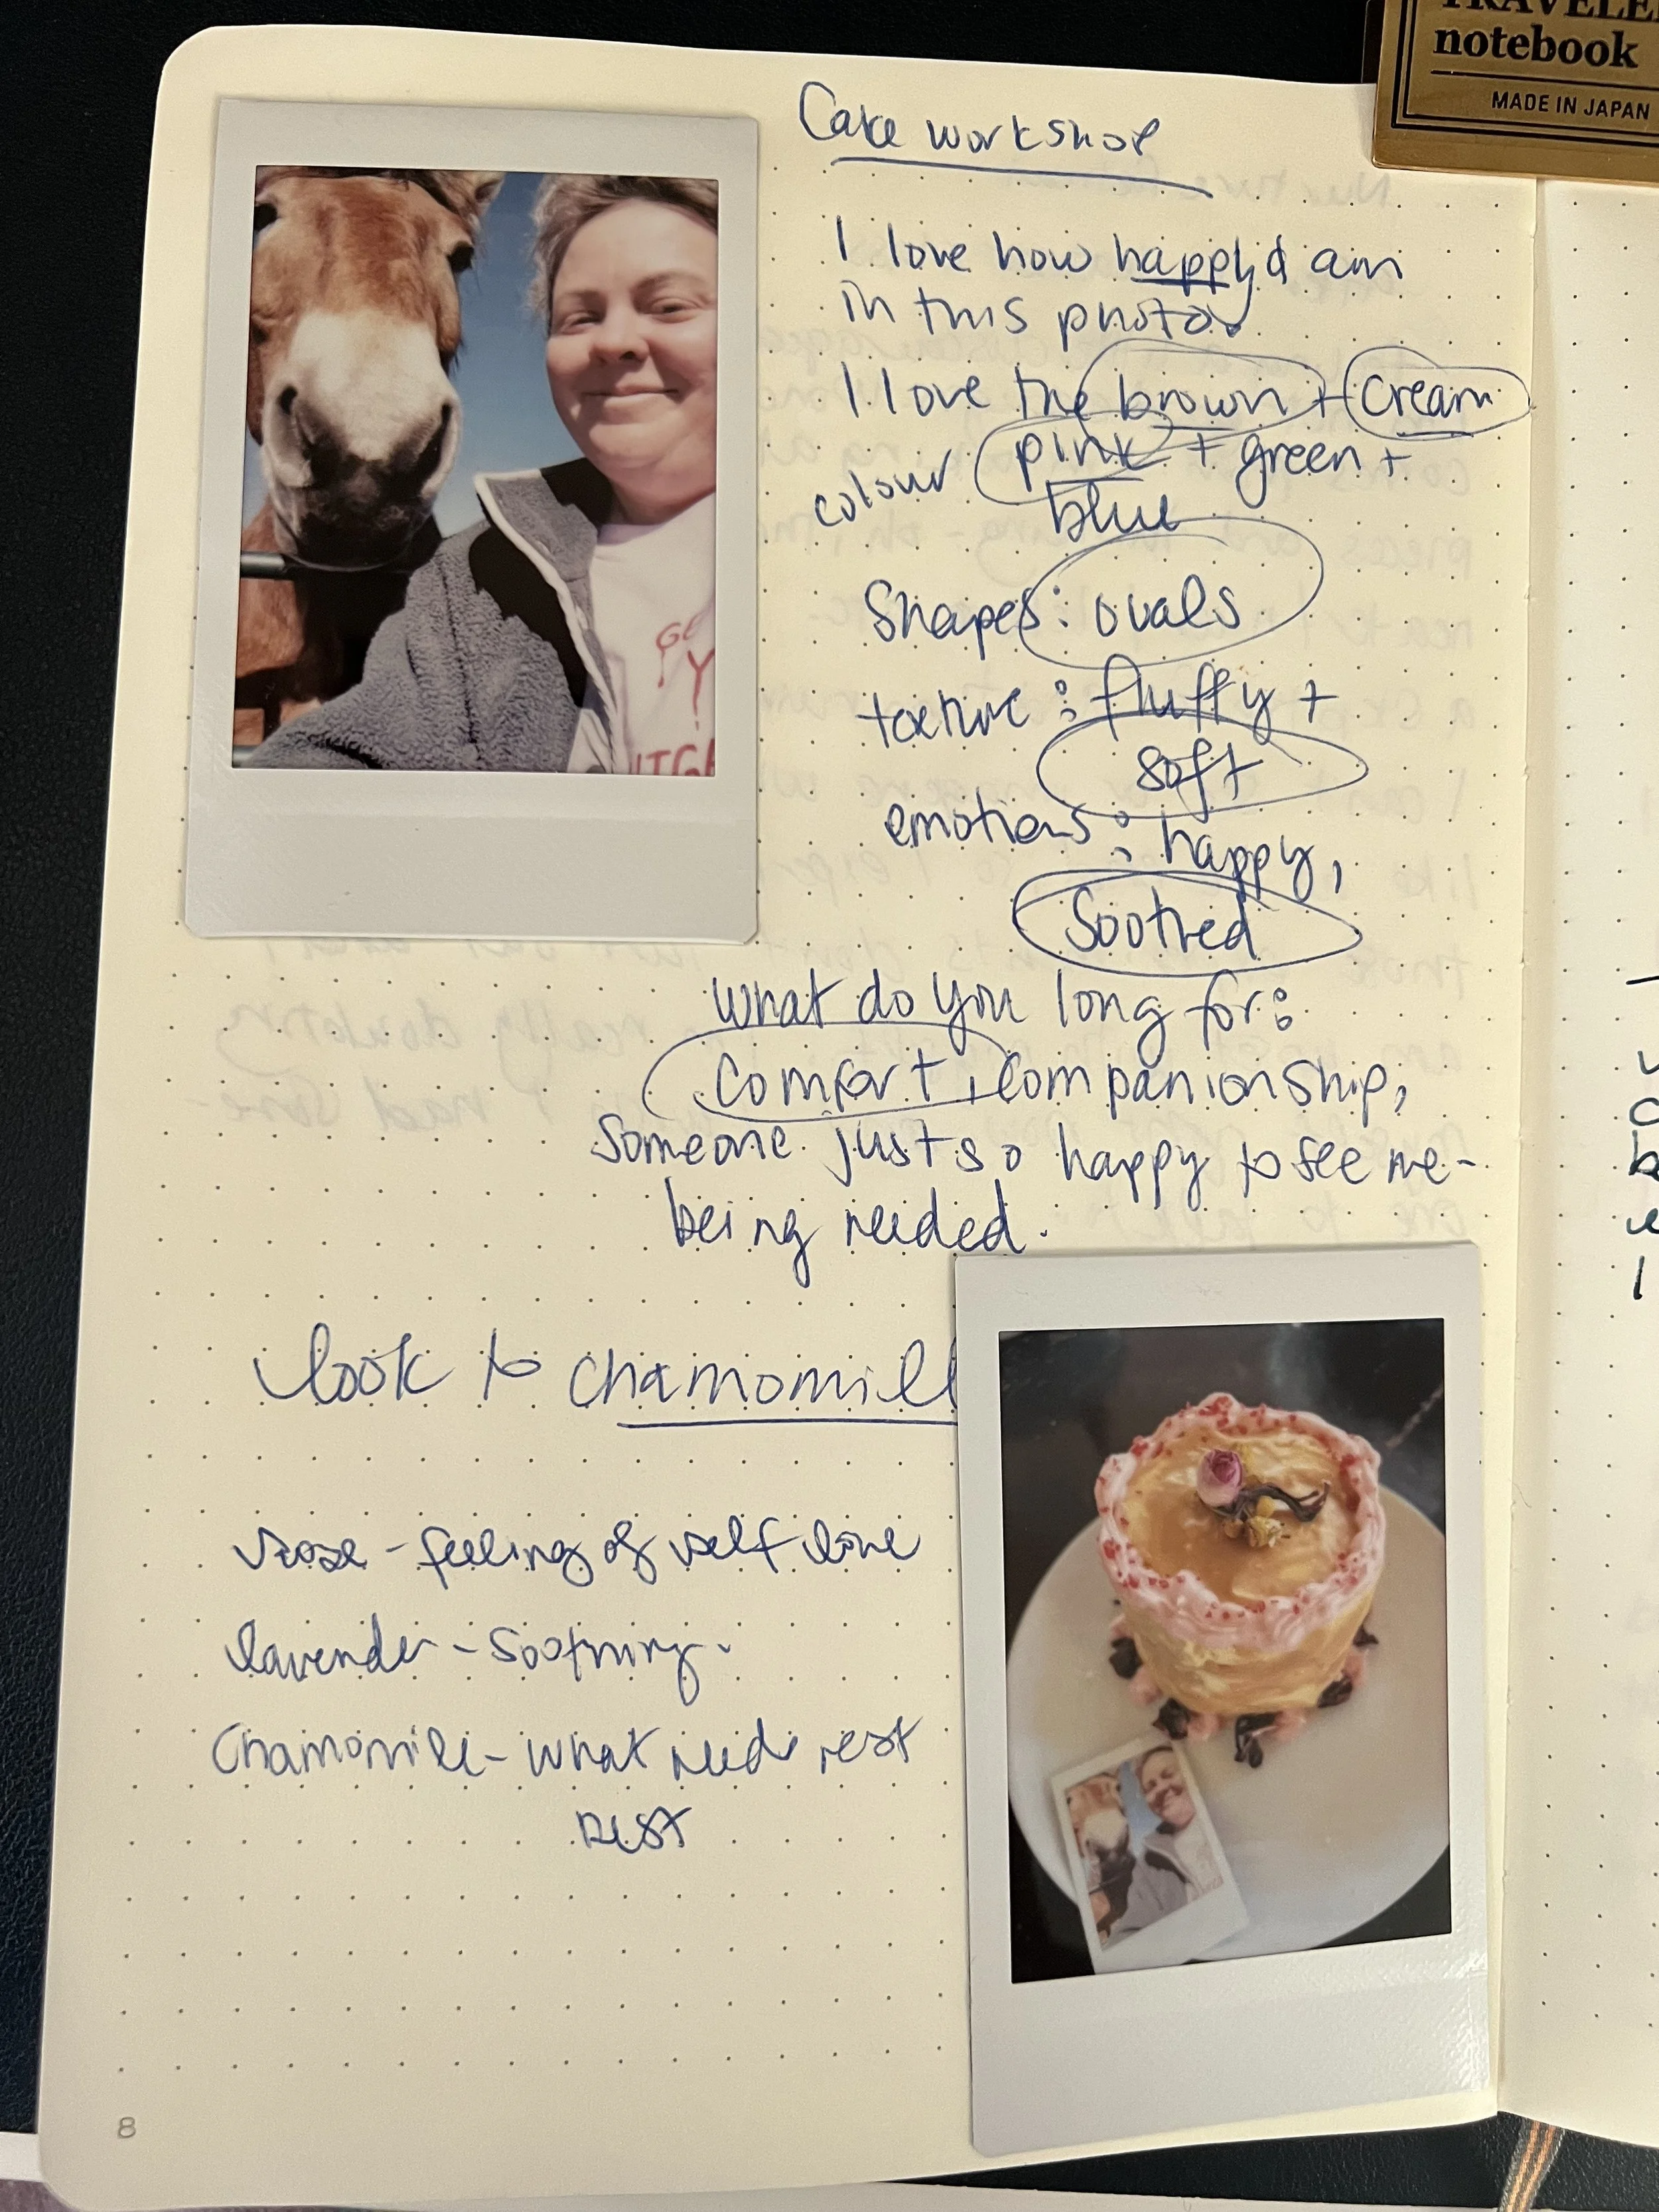 TRAVELE
notebook
MADE IN JAPAN
Cake workshop
I love how happy I am
in this photo
I love the brown + cream
colour pink + green +
blue
Shapes: ovals
texture: fluffy +
soft
emotions: happy,
Soothed
what do you long for:
comfort, companionship,
Someone just so happy to see me -
being needed.
look to chamomill
rose - feeling of self love
lavender - soothing.
Chamomile - what needs rest
rest
8